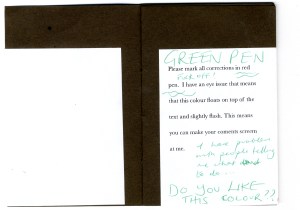 GREEN PEN
Please mark all corrections in red
pen. I have an eye issue that means
that this colour floats on top of the
text and slightly flash. This means
you can make your coments scream
at me.
I have problems
with people telling
me what
to do...
DO YOU LIKE
THIS COLOUR??